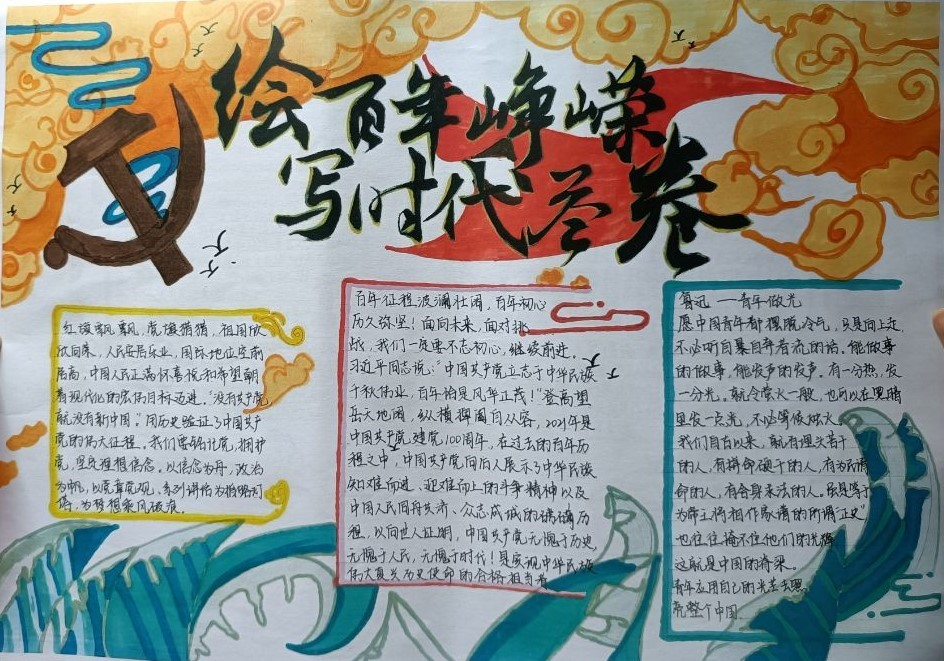 绘百年峥嵘
写时代答卷
红旗飘飘，党旗猎猎，祖国欣
欣向荣，人民安居乐业，国际地位空前
提高，中国人民正满怀喜悦和希望朝
着现代化的宏伟目标迈进。"没有共产党
就没有新中国"用历史验证了中国共产
党的伟大征程。我们要铭记党，拥护
党，坚定理想信念。以信念为舟，政治
为帆，以党章党规、系列讲话为指路灯
塔，为梦想乘风破浪。
百年征程波澜壮阔，百年初心
历久弥坚！面向未来，面对挑
战，我们一定要不忘初心，继续前进，
习近平同志说："中国共产党立志于中华民族
千秋伟业，百年恰是风华正茂！"登高望
岳天地阔，纵横捭阖自从容，2021年是
中国共产党建党100周年，在过去的百年历
程之中，中国共产党向后人展示了中华民族
知难而进、迎难而上的斗争精神以及
中国人民同舟共济、众志成城的磅礴历
程，以向世人证明，中国共产党无愧于历史，
无愧于人民，无愧于时代！是实现中华民族
伟大复兴历史使命的合格担当者
鲁迅——青年做光
愿中国青年都摆脱冷气，只是向上走，
不必听自暴自弃者流的话。能做事
的做事，能发声的发声。有一分热，发
一分光。就令萤火一般，也可以在黑暗
里发一点光，不必等候炬火。
我们自古以来，就有埋头苦干
的人，有拼命硬干的人，有为民请
命的人，有舍身求法的人。虽是等于
为帝王将相作家谱的所谓"正史"
也往往掩不住他们的光辉
这就是中国的脊梁。
青年应用自己的光芒去照
亮整个中国